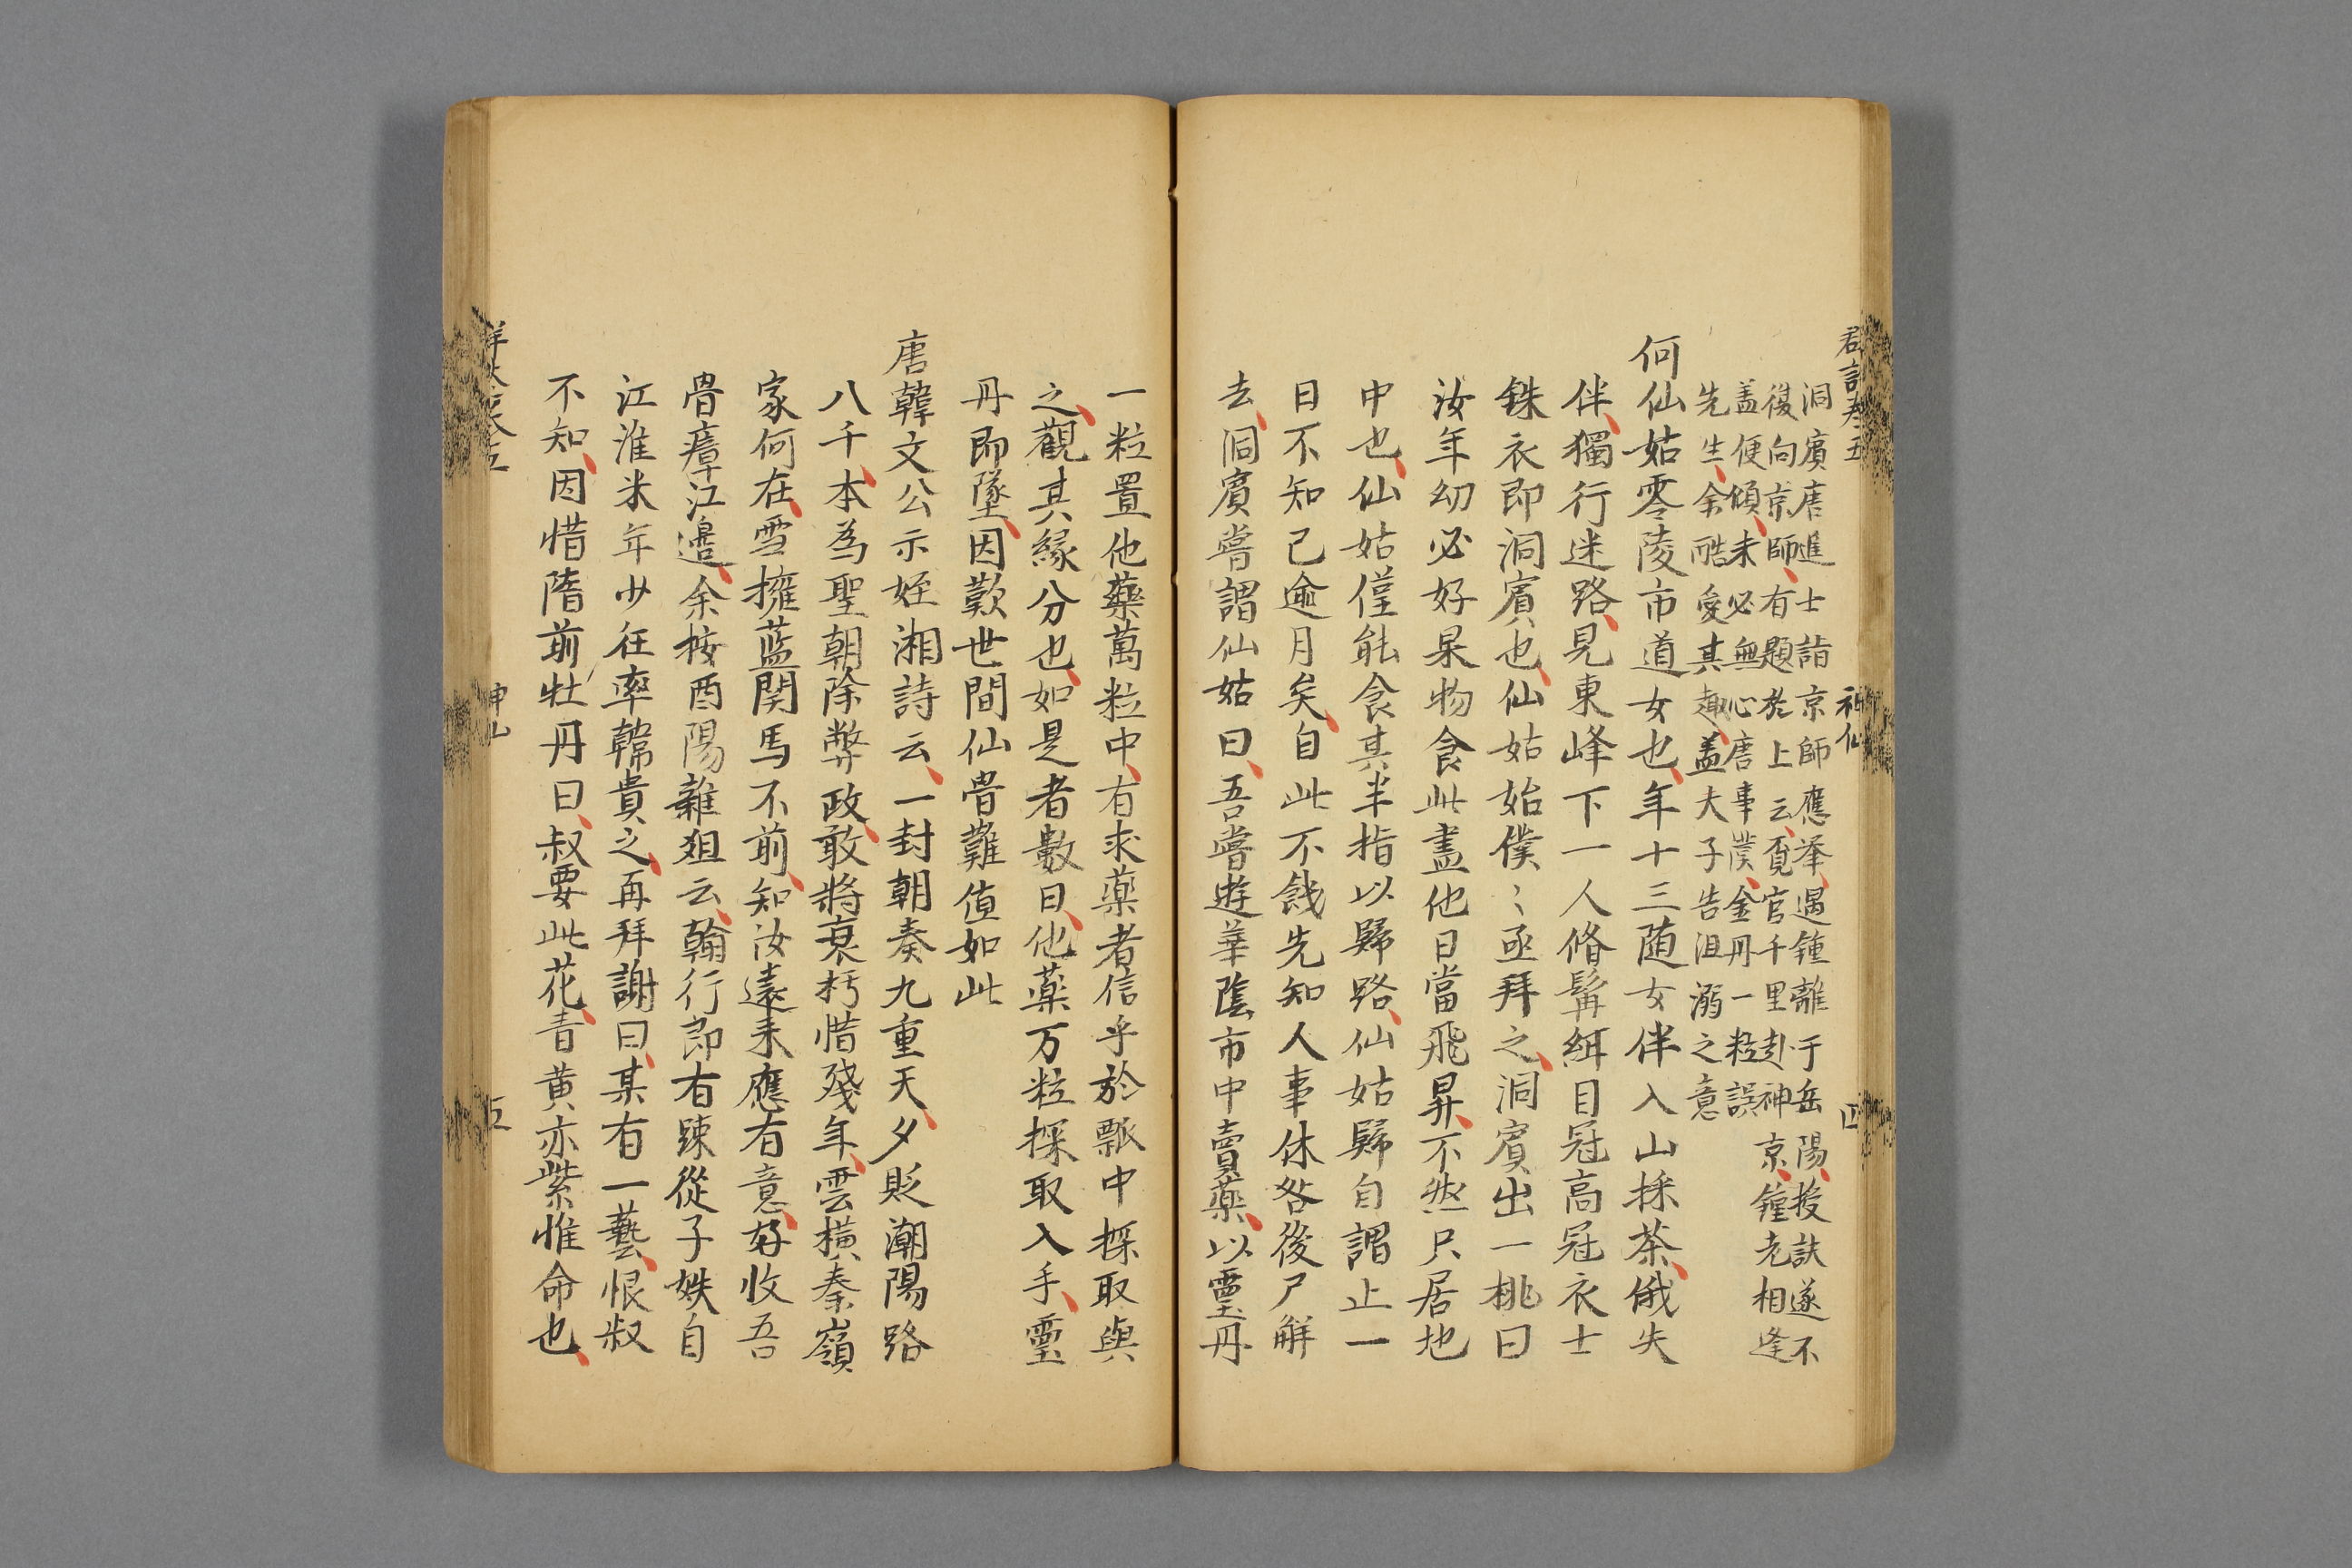 洞賓唐進士詣京師應举遇鍾離于岳陽授訣遂不
復向京師有題於上云覔官千里赴神京鍾老相逢
盖便傾未必無心唐事業金丹一粒誤
先生余酷愛其趣盖大子告沮溺之意
何仙姑零陵市道女也年十三随女伴入山採茶俄失
伴獨行迷路見東峰下一人脩髯紺目冠高冠衣士
銖衣即洞賓也仙姑始僕〻亟拜之洞賓出一桃曰
汝年幼必好果物食此盡他日當飛昇不然只居地
中也仙姑僅能食其半指以歸路仙姑歸自謂止一
日不知已逾月矣自此不饑先知人事休咎後尸解
去洞賓嘗謂仙姑曰吾嘗遊華陰市中賣藥以靈丹
一粒置他藥萬粒中有求藥者信手於瓢中探取與
之觀其緣分也如是者數日他藥万粒探取入手靈
丹即墜因歎世間仙骨難值如此
唐韓文公示姪湘詩云一封朝奏九重天夕貶潮陽路
八千本為聖朝除弊政敢將衰朽惜殘年雲橫秦嶺
家何在雪擁蓝関馬不前知汝遠来應有意好收吾
骨瘴江邊余按酉陽雜俎云翰行即有踈從子姪自
江淮来年少狂率韓貴之再拜謝曰某有一藝恨叔
不知因惜隋前牡丹曰叔要此花青黄赤紫惟命也
神仙